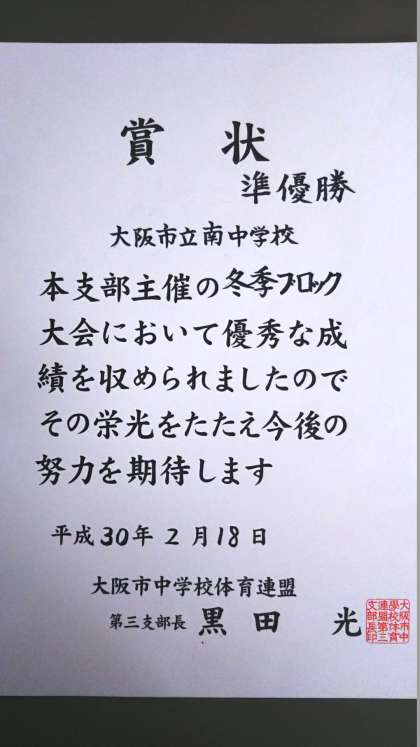 賞状
準優勝
大阪市立南中学校
本支部主催の冬季ブロック
大会において優秀な成
績を収められましたので
その栄光をたたえ今後の
努力を期待します
平成30年2月18日
大阪市中学校体育連盟
第三支部長 黒田 光
大阪市中
學校体育
連盟第三
支部長印